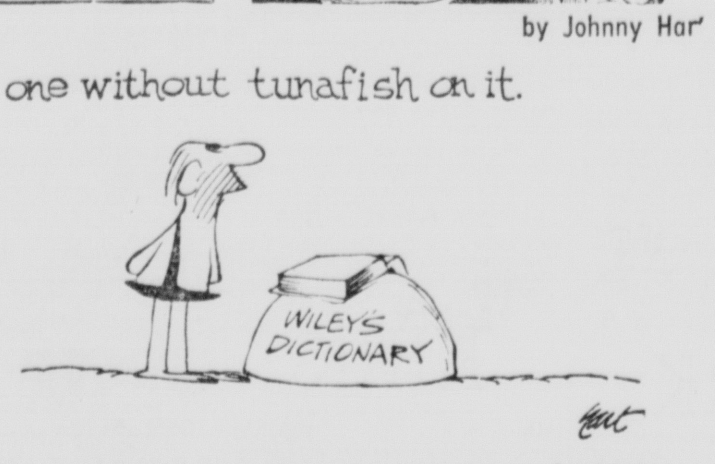 by Johnny Har
one without tunafish on it.
WILEY'S
DICTIONARY
Hart